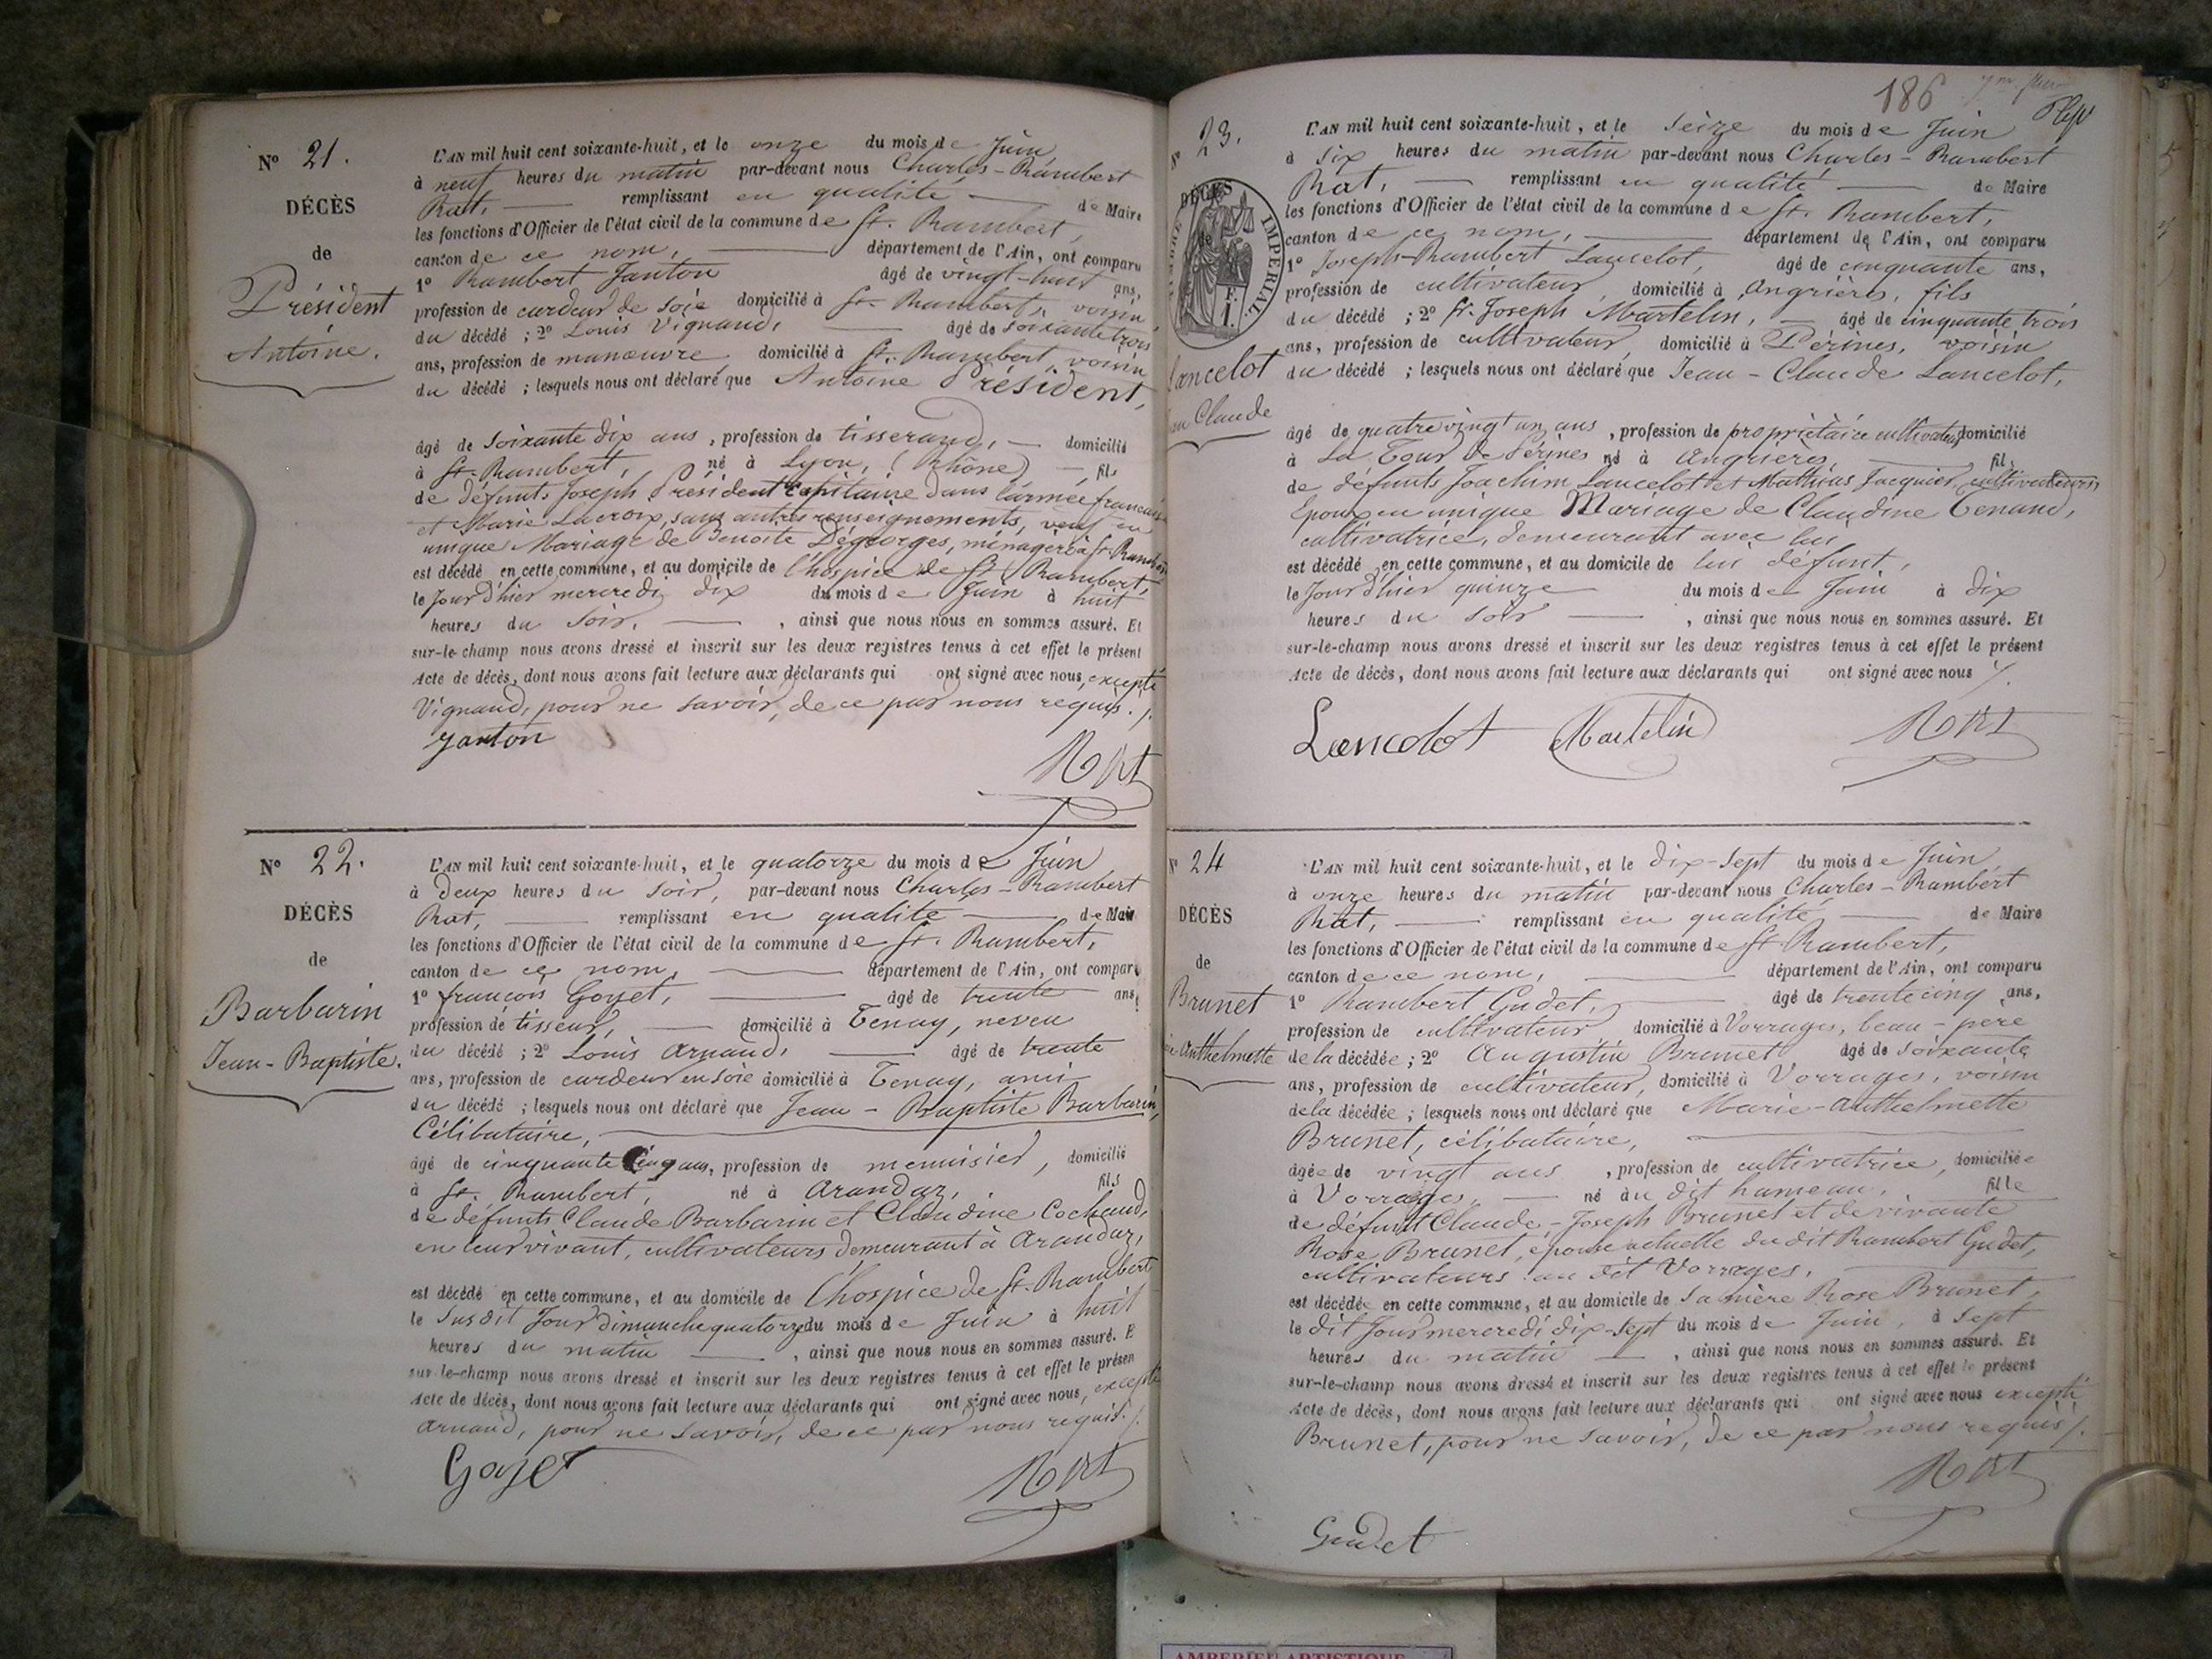 N° 21.
DÉCÈS
de
Président
Antoine.
L'AN mil huit cent soixante-huit, et le onze du mois de Juin
à neuf heures du matin par-devant nous Charles-Rambert
Rat, remplissant en qualité de Maire
les fonctions d'Officier de l'état civil de la commune de St. Rambert,
canton de ce nom, département de l'Ain, ont comparu
1° Rambert Janton âgé de vingt-huit ans,
profession de cardeur de soie domicilié à St. Rambert, voisin
du décédé ; 2° Louis Vignand, âgé de soixante trois
ans, profession de manœuvre domicilié à St. Rambert, voisin
du décédé ; lesquels nous ont déclaré que Antoine Président,
âgé de soixante dix ans, profession de tisserand, domicilié
à St. Rambert, né à Lyon, (Rhône) fils
de défunts Joseph Président capitaine dans l'armée française
et Marie Lacroix, sans autres renseignements, veuf en
unique Mariage de Benoite Dégeorges, ménagère à St. Rambert
est décédé en cette commune, et au domicile de l'hospice de St. Rambert,
le Jour d'hier mercredi dix du mois de Juin à huit
heures du soir, , ainsi que nous nous en sommes assuré. Et
sur-le-champ nous avons dressé et inscrit sur les deux registres tenus à cet effet le présent
Acte de décès, dont nous avons fait lecture aux déclarants qui ont signé avec nous, excepté
Vignand, pour ne savoir, de ce par nous requis. /.
Janton
Rat
N° 22.
DÉCÈS
de
Barbarin
Jean-Baptiste.
L'AN mil huit cent soixante-huit, et le quatorze du mois de Juin
à deux heures du soir, par-devant nous Charles-Rambert
Rat, remplissant en qualité de Maire
les fonctions d'Officier de l'état civil de la commune de St. Rambert,
canton de ce nom, département de l'Ain, ont comparu
1° françois Goyet, âgé de trente ans,
profession de tisseur, domicilié à Tenay, neveu
du décédé ; 2° Louis Arnaud, âgé de trente
ans, profession de cardeur en soie domicilié à Tenay, ami
du décédé ; lesquels nous ont déclaré que Jean-Baptiste Barbarin,
Célibataire,
âgé de cinquante cinq ans, profession de menuisier, domicilié
à St. Rambert, né à Arandaz, fils
de défunts Claude Barbarin et Claudine Cochaud,
en leur vivant, cultivateurs demeurant à Arandaz,
est décédé en cette commune, et au domicile de l'hospice de St. Rambert
le susdit Jour dimanche quatorze du mois de Juin à huit
heures du matin , ainsi que nous nous en sommes assuré. E
sur-le-champ nous avons dressé et inscrit sur les deux registres tenus à cet effet le présen
Acte de décès, dont nous avons fait lecture aux déclarants qui ont signé avec nous, excepté
Arnaud, pour ne savoir, de ce par nous requis. /.
Goyet
Rat
186
N° 23.
DÉCÈS
de
TIMBRE IMPÉRIAL
Lancelot
Claude
L'AN mil huit cent soixante-huit, et le seize du mois de Juin
à six heures du matin par-devant nous Charles-Rambert
Rat, remplissant en qualité de Maire
les fonctions d'Officier de l'état civil de la commune de St. Rambert,
canton de ce nom, département de l'Ain, ont comparu
1° Joseph-Rambert Lancelot, âgé de cinquante ans,
profession de cultivateur, domicilié à Angrières, fils
du décédé ; 2° fr. Joseph Martelin, âgé de cinquante trois
ans, profession de cultivateur, domicilié à Pérines, voisin
du décédé ; lesquels nous ont déclaré que Jean-Claude Lancelot,
âgé de quatre vingt un ans, profession de propriétaire cultivateur, domicilié
à La Tour de Sérines né à Angrieres, fils
de défunts Joachim Lancelot et Mathias Jacquier, cultivateurs
Epoux en unique Mariage de Claudine Tenand,
cultivatrice, demeurant avec lui
est décédé en cette commune, et au domicile de lui défunt,
le Jour d'hier quinze du mois de Juin à dix
heures du soir , ainsi que nous nous en sommes assuré. Et
sur-le-champ nous avons dressé et inscrit sur les deux registres tenus à cet effet le présent
Acte de décès, dont nous avons fait lecture aux déclarants qui ont signé avec nous /.
Lancelot Martelin Rat
N° 24
DÉCÈS
de
Brunet
Anthelmette
L'AN mil huit cent soixante-huit, et le dix-sept du mois de Juin
à onze heures du matin par-devant nous Charles-Rambert
Rat, remplissant en qualité de Maire
les fonctions d'Officier de l'état civil de la commune de St. Rambert,
canton de ce nom, département de l'Ain, ont comparu
1° Rambert Gudet, âgé de trente cinq ans,
profession de cultivateur domicilié à Vorrages, beau-pere
de la décédée ; 2° Augustin Brunet âgé de soixante
ans, profession de cultivateur, domicilié à Vorrages, voisin
de la décédée ; lesquels nous ont déclaré que Marie-Anthelmette
Brunet, célibataire,
âgée de vingt ans , profession de cultivatrice, domiciliée
à Vorrages, né au dit hameau, fille
de défunt Claude-Joseph Brunet et de vivante
Rose Brunet, épouse actuelle du dit Rambert Gudet,
cultivateurs au dit Vorrages,
est décédée en cette commune, et au domicile de sa mère Rose Brunet,
le dit Jour mercredi dix-sept du mois de Juin, à sept
heures du matin , ainsi que nous nous en sommes assuré. Et
sur-le-champ nous avons dressé et inscrit sur les deux registres tenus à cet effet le présent
Acte de décès, dont nous avons fait lecture aux déclarants qui ont signé avec nous excepté
Brunet, pour ne savoir, de ce par nous requis /.
Rat
Gudet
AMBERIEU ARTISTIQUE